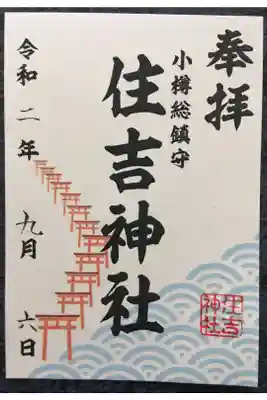 奉拝
小樽総鎮守
住吉神社
令和二年 九月 六日
住吉
神社